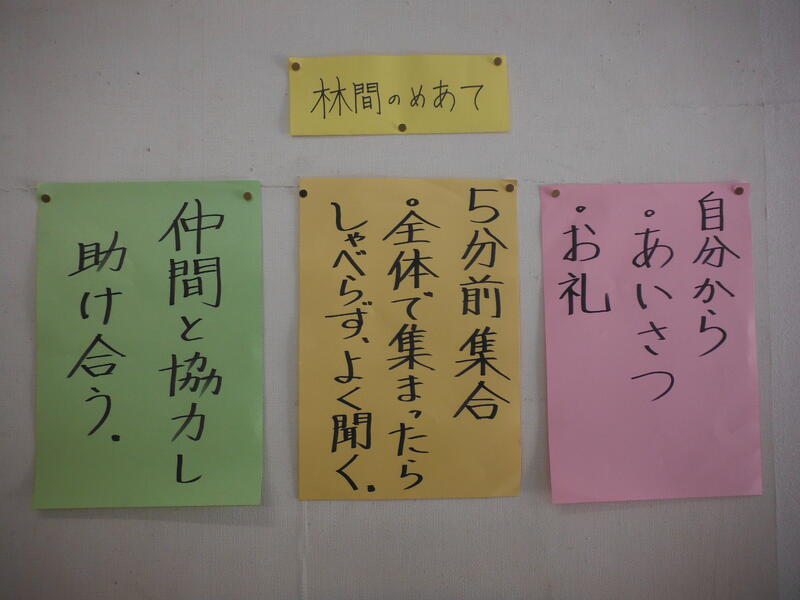 林間のめあて
自分から
・あいさつ
・お礼
5分前集合
・全体で集まったら
しゃべらず、よく聞く。
仲間と協力し
助け合う。